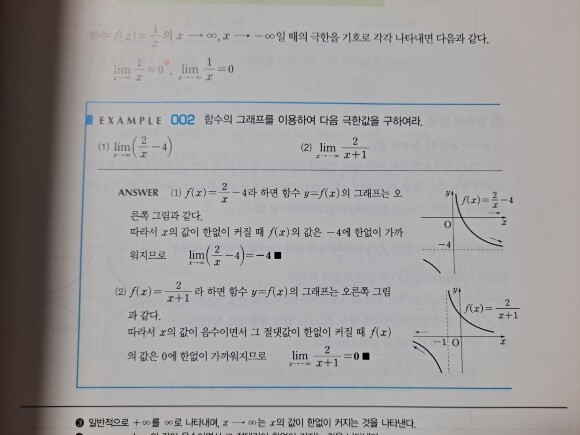 함수 f(x)=1/x의 x → ∞, x → -∞일 때의 극한을 기호로 각각 나타내면 다음과 같다.
lim x→∞ 1/x=0❸, lim x→-∞ 1/x=0
EXAMPLE 002 함수의 그래프를 이용하여 다음 극한값을 구하여라.
(1) lim x→∞ (2/x-4) (2) lim x→-∞ 2/(x+1)
ANSWER (1) f(x)=2/x-4라 하면 함수 y=f(x)의 그래프는 오
른쪽 그림과 같다.
따라서 x의 값이 한없이 커질 때 f(x)의 값은 -4에 한없이 가까
워지므로 lim x→∞ (2/x-4)=-4 ■
y f(x)=2/x-4
O x
-4
(2) f(x)=2/(x+1)라 하면 함수 y=f(x)의 그래프는 오른쪽 그림
과 같다.
따라서 x의 값이 음수이면서 그 절댓값이 한없이 커질 때 f(x)
의 값은 0에 한없이 가까워지므로 lim x→-∞ 2/(x+1)=0 ■
y
f(x)=2/(x+1)
-1 O x
❸ 일반적으로 +∞를 ∞로 나타내며, x → ∞는 x의 값이 한없이 커지는 것을 나타낸다.